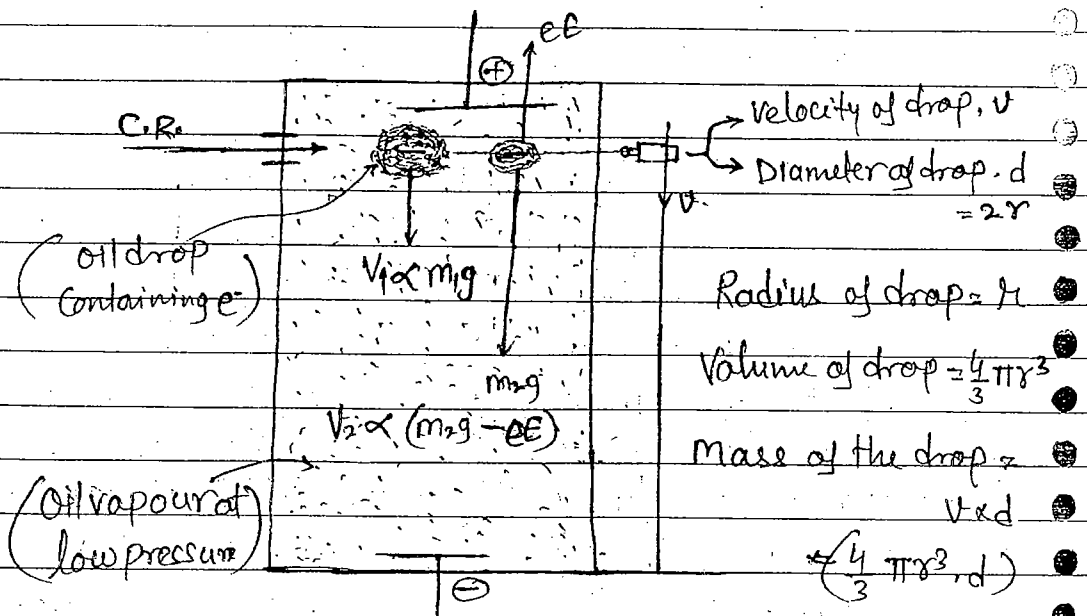 eE
⊕
C.R.
velocity of drop, v
Diameter of drop. d
= 2r
v
(oil drop
containing e⁻)
V₁ ∝ m₁g
Radius of drop = r
m₂g
Volume of drop = 4/3 πr³
V₂ ∝ (m₂g - eE)
Mass of the drop =
(Oil vapour at
low pressure)
v×d
(4/3 πr³.d)
⊖